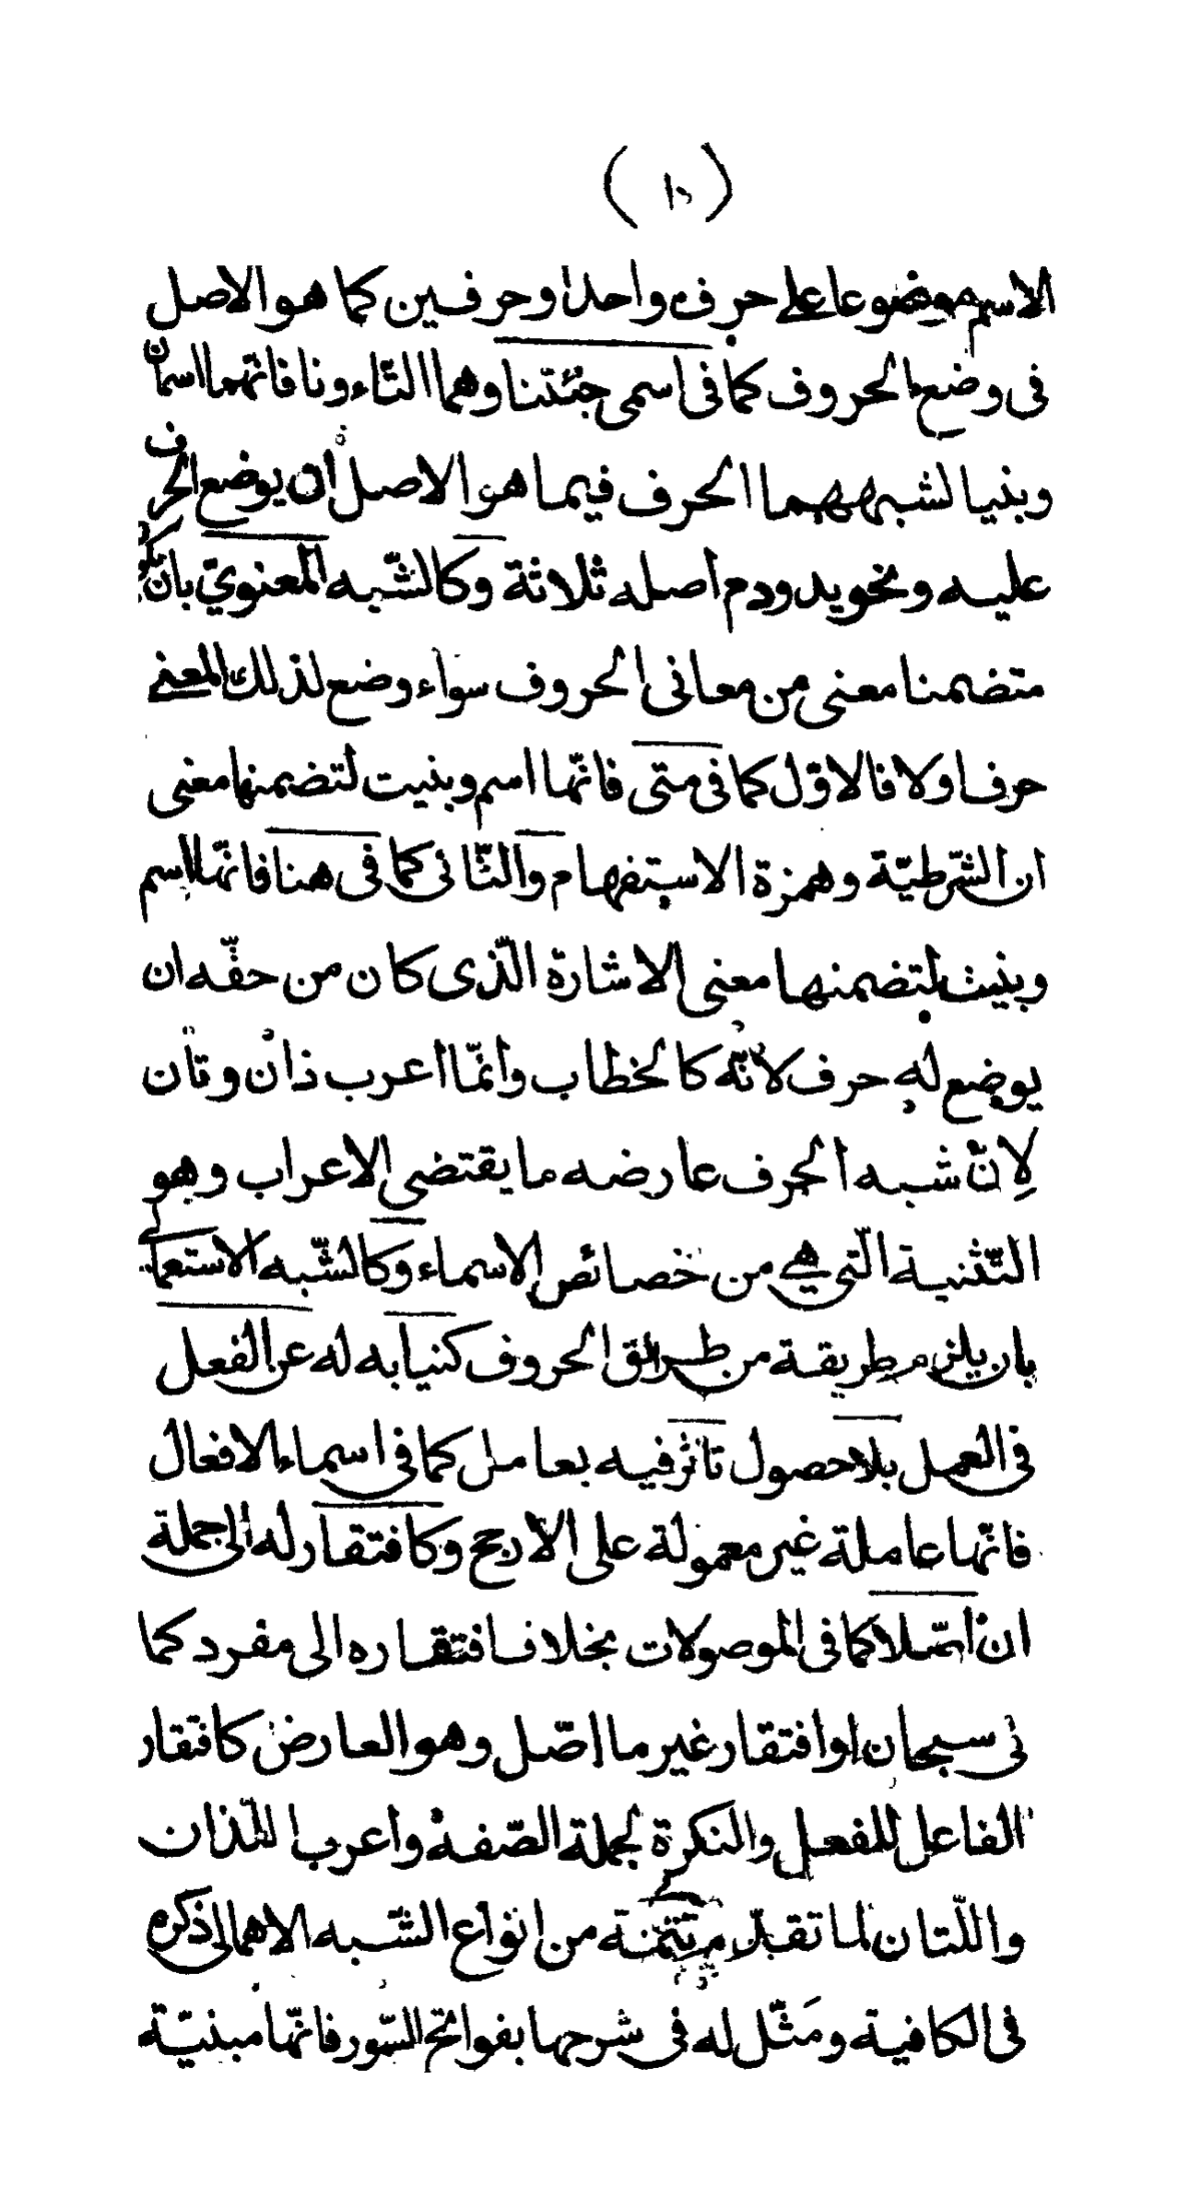 (١٥)
الاسم موضوعا على حرف واحد او حرفين كما هو الاصل
فى وضع الحروف كما فى اسمى جئتنا وهما التّاء ونا فانّهما اسمان
وبنيا لشبههما الحرف فيما هو الاصل أن يوضع الحرف
عليه ونحو يد ودم اصله ثلاثة وكالشّبه المعنويّ بان يكون
متضمنا معنى من معانى الحروف سواء وضع لذلك المعنى
حرف اولا فالاوّل كما فى متى فانّها اسم وبنيت لتضمنها معنى
ان الشّرطيّة وهمزة الاستفهام والثّانى كما فى هنا فانّها اسم
وبنيت لتضمنها معنى الاشارة الّذى كان من حقّه ان
يوضع له حرف لأنّه كالخطاب وانّما اعرب ذان وتان
لِانّ شبه الحرف عارضه ما يقتضى الاعراب وهو
التّثنية الّتى هي من خصائص الاسماء وكالشّبه الاستعمالى
بان يلزم طريقة من طرائق الحروف كنيابه له عن الفعل
فى العمل بلا حصول تاثر فيه بعامل كما فى اسماء الافعال
فانّها عاملة غير معمولة على الارجح وكافتقار له الى جملة
ان اصّلا كما فى الموصولات بخلاف افتقاره الى مفرد كما
فى سبحان او افتقار غير ما اصّل وهو العارض كافتقار
الفاعل للفعل والنكرة لجملة الصّفة واعرب اللّذان
واللّتان لما تقدّم تتمّة من انواع الشّبه الاهمالى ذكره
فى الكافية ومَثّل له فى شرحها بفواتح السّور فانّها مبنيّة